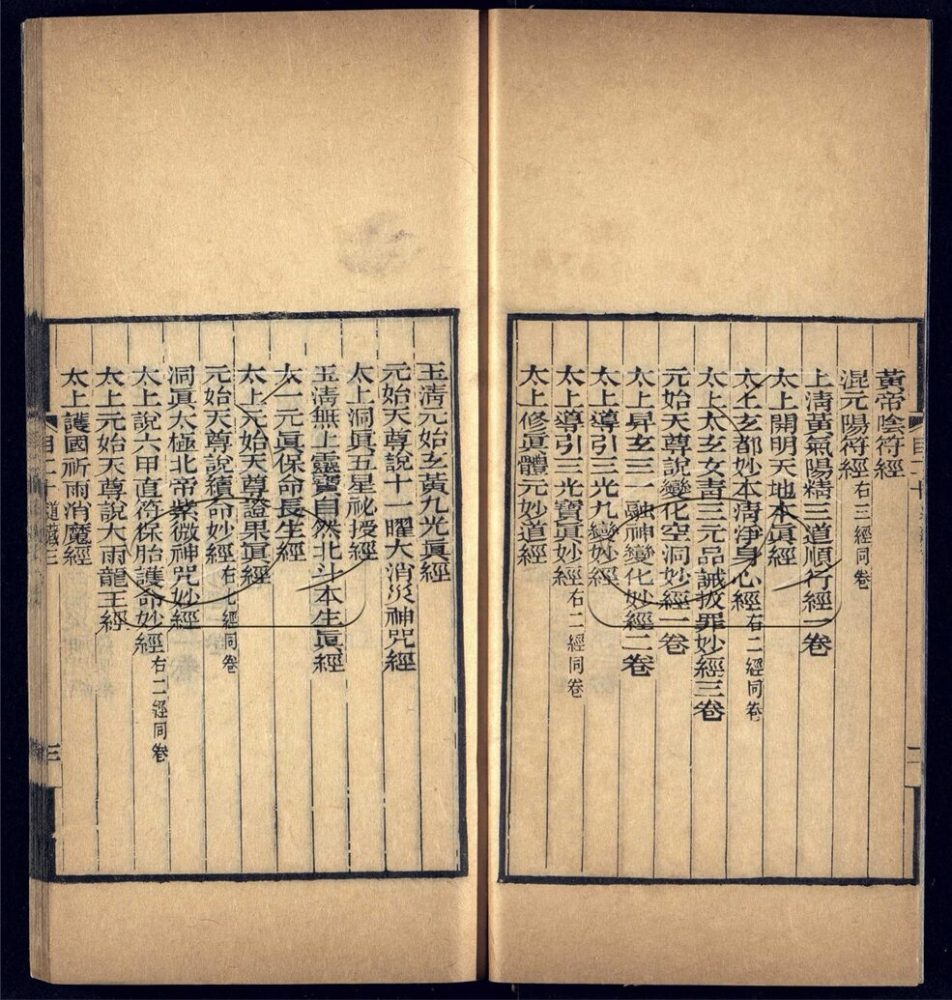 黃帝陰符經
混元陽符經右三經同卷
上清黃氣陽精三道順行經一卷
太上開明天地本眞經
太上玄都妙本清淨身心經右二經同卷
太上太玄女青三元品誡拔罪妙經三卷
元始天尊說變化空洞妙經一卷
太上昇玄三一融神變化妙經二卷
太上導引三光九變妙經
太上導引三光寶眞妙經右二經同卷
太上修眞體元妙道經
二
玉清元始玄黃九光眞經
元始天尊說十一曜大消災神咒經
太上洞眞五星祕授經
玉清無上靈寶自然北斗本生眞經
太一元眞保命長生經
太上元始天尊證果眞經
元始天尊說續命妙經右七經同卷
洞眞太極北帝紫微神咒妙經
太上說六甲直符保胎護命妙經右二經同卷
太上元始天尊說大雨龍王經
太上護國祈雨消魔經
目二十 道藏三
三